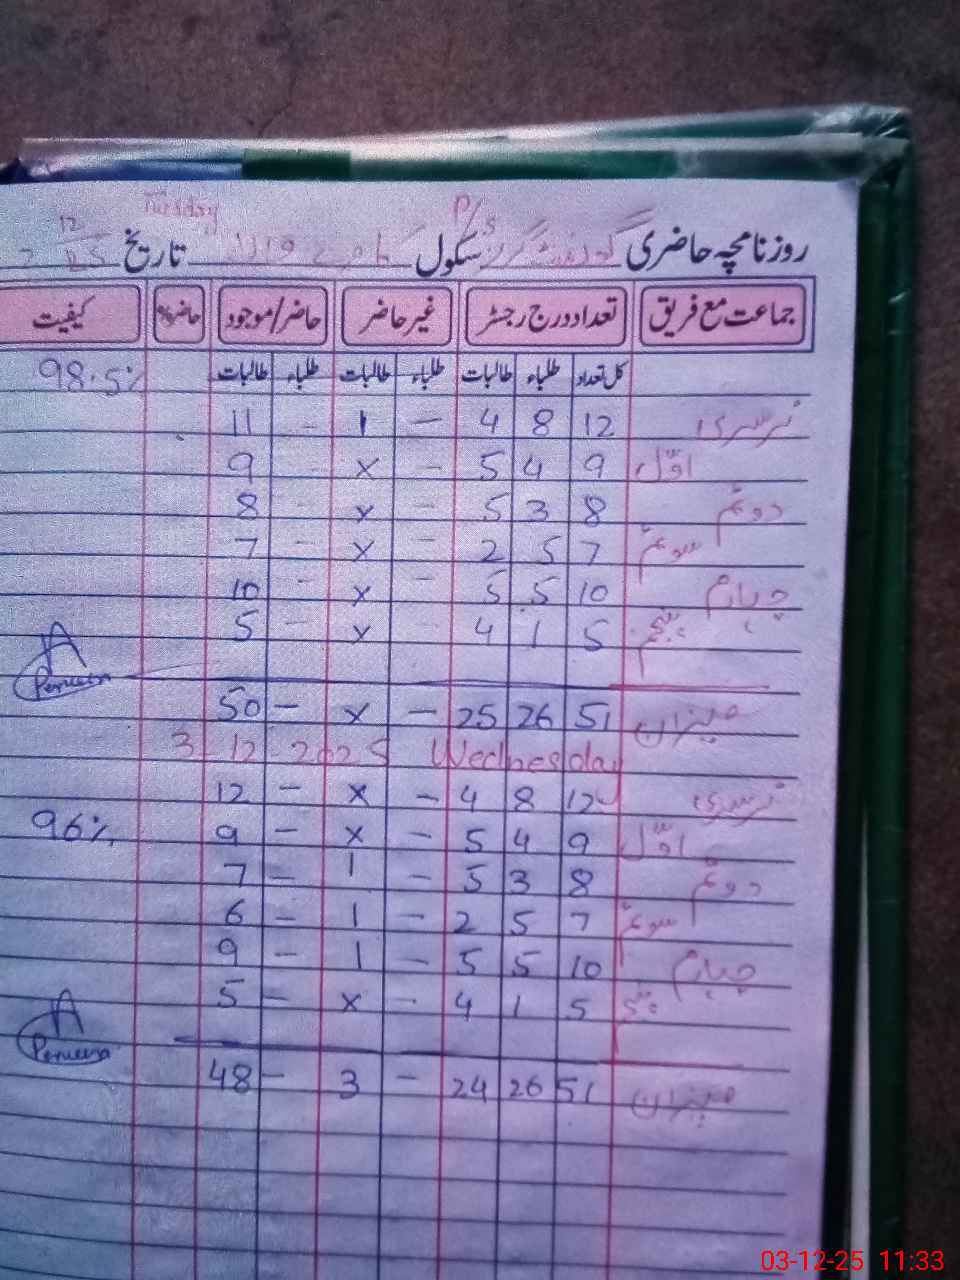 Tuesday P/S
روزنامچہ حاضری گورنمنٹ گرلز سکول تاریخ 2 12 25
جماعت مع فریق تعداد درج رجسٹر غیر حاضر حاضر/موجود حاضر% کیفیت
کل تعداد طلباء طالبات طلباء طالبات طلباء طالبات 98.5%
نرسری 12 8 4 - 1 - 11
اوّل 9 4 5 - x - 9
دوئم 8 3 5 - x - 8
سوئم 7 5 2 - x - 7
چہارم 10 5 5 - x - 10
پنجم 5 1 4 - x - 5
Perveen
میزان 51 26 25 - x - 50
3 12 2025 Wednesday
نرسری 12 8 4 - x - 12
اوّل 9 4 5 - x - 9 96%
دوئم 8 3 5 - 1 - 7
سوئم 7 5 2 - 1 - 6
چہارم 10 5 5 - 1 - 9
5 1 4 - x - 5
Perveen
میزان 51 26 24 - 3 - 48
03-12-25 11:33